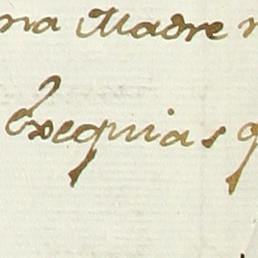 na Madre
Exequias q